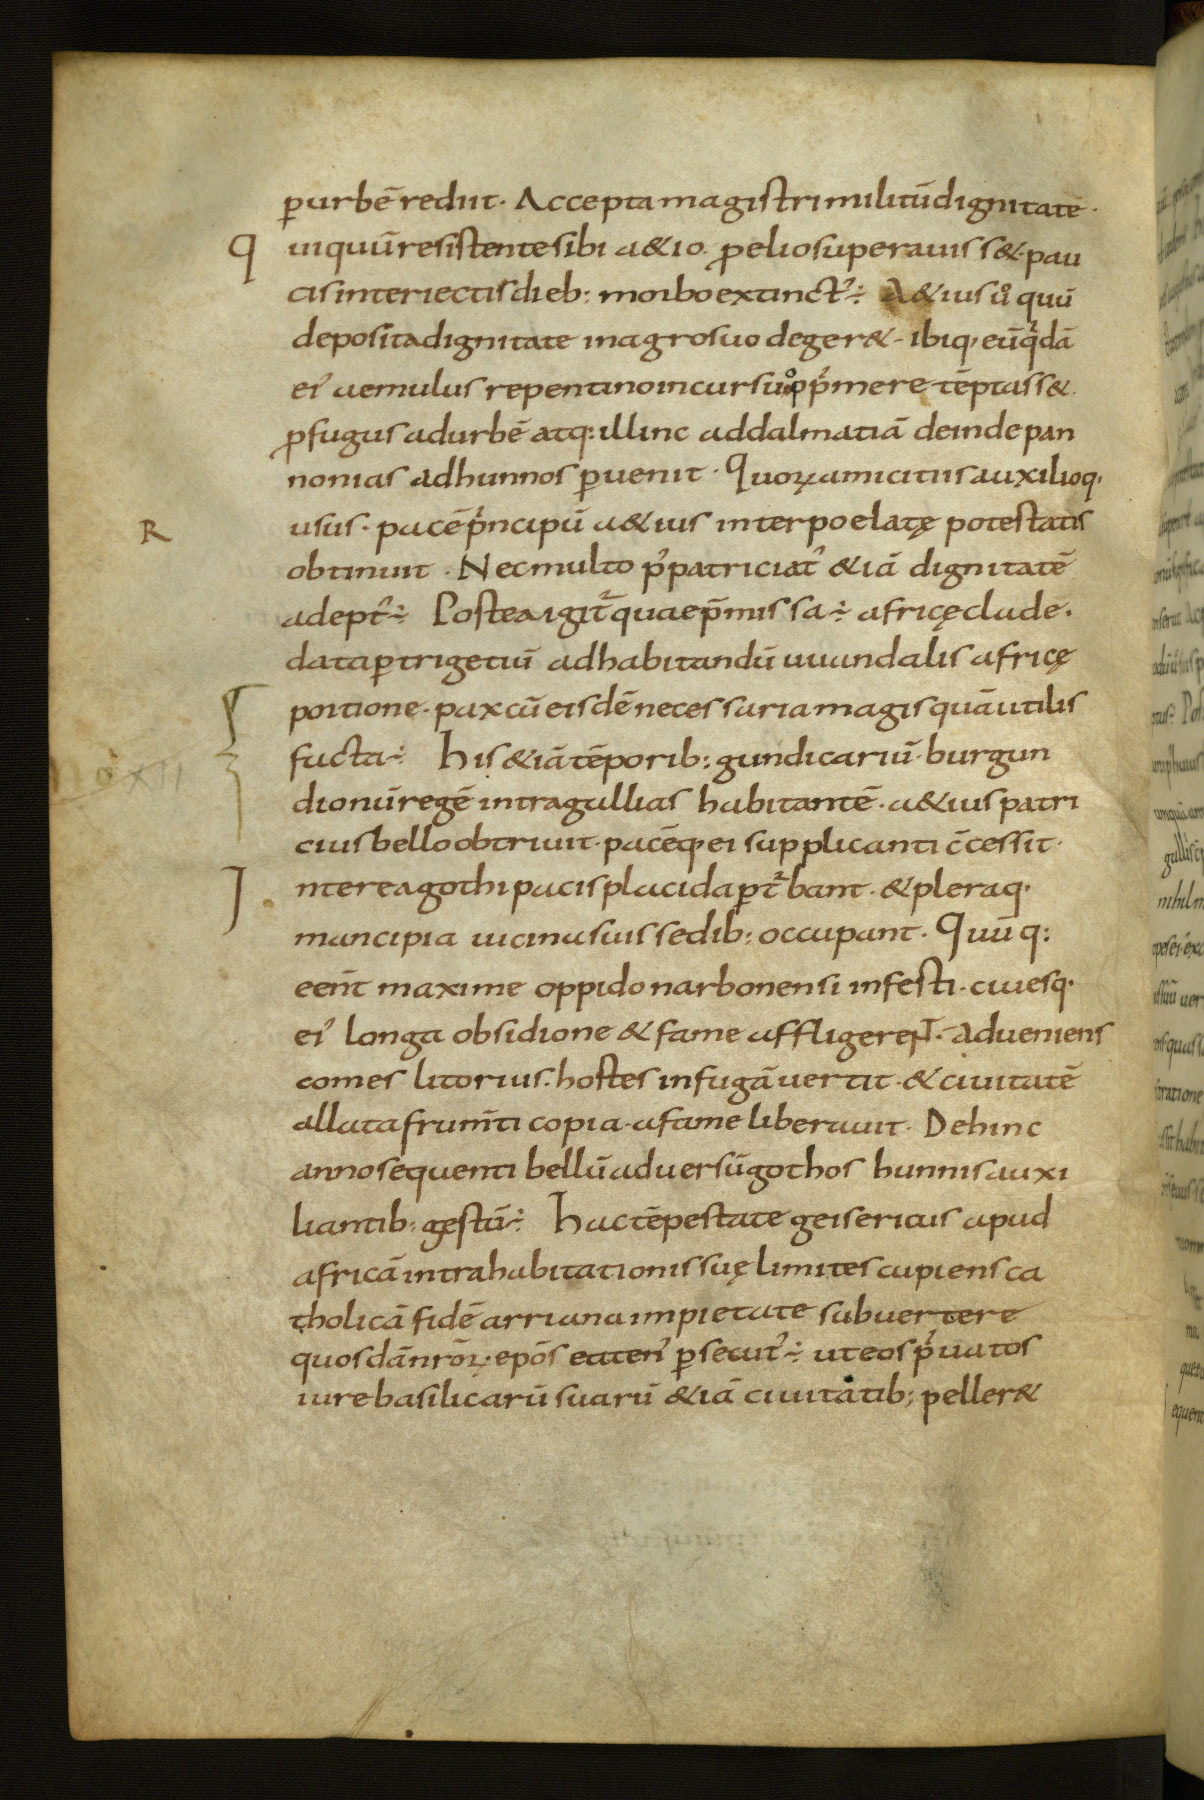 ꝑurbē rediit. Accepta magistri militū dignitate.
Qui quū resistente sibi a&io. ꝓelio superauiss&. pau
cis interiectis dieb: morbo extinct᾽ ÷ A&ius uͦ quū
deposita dignitate in agro suo deger&. ibiq, eū qͥdā
ei᾽ aemulus repentino incursu oppͥmere tēptass&.
ꝓfugus ad urbē atq: illinc ad dalmatiā deinde pan
nonias ad hunnos ꝑuenit. Quoꝝ amicitiis auxilioq,
R
usus. pacē pͥncipū a&ius interpoelatę potestatis
obtinuit. Nec multo p᾽ patriciat᾽ &iā dignitatē
adept᾽ ÷ Postea igit᷑ quae p̄missa ÷ africę clade.
data ꝑ trigetiū ad habitandū uuandalis africę
portione. pax cū eisdē necessaria magis quā utilis
facta ÷ His &iā tēporib: gundicariū. burgun
XII
dionū regē intra gallias habitantē. a&ius patri
cius bello obtriuit. pacēq, ei supplicanti c̄cessit.
Interea gothi pacis placida ꝑt᷑bant. & pleraq,
mancipia uicina suis sedib: occupant. Quūq:
eēnt maxime oppido narbonensi infesti. ciuesq,
ei᾽ longa obsidione & fame affligerent. adueniens
comes litorius. hostes in fugā uertit. & ciuitatē
allata frum̄ti copia. a fame liberauit. Dehinc
anno sequenti bellū aduersū gothos hunnis auxi
liantib: gestū ÷ Hac tēpestate geisericus apud
africā intra habitationis suę limites cupiens ca
tholicā fidē arriana impietate subuertere
quosdā nr̄oꝝ. epōs eaten᾽ ꝑsecut᾽ ÷ ut eos pͥuatos
iure basilicarū suarū &iā ciuitatib: peller&